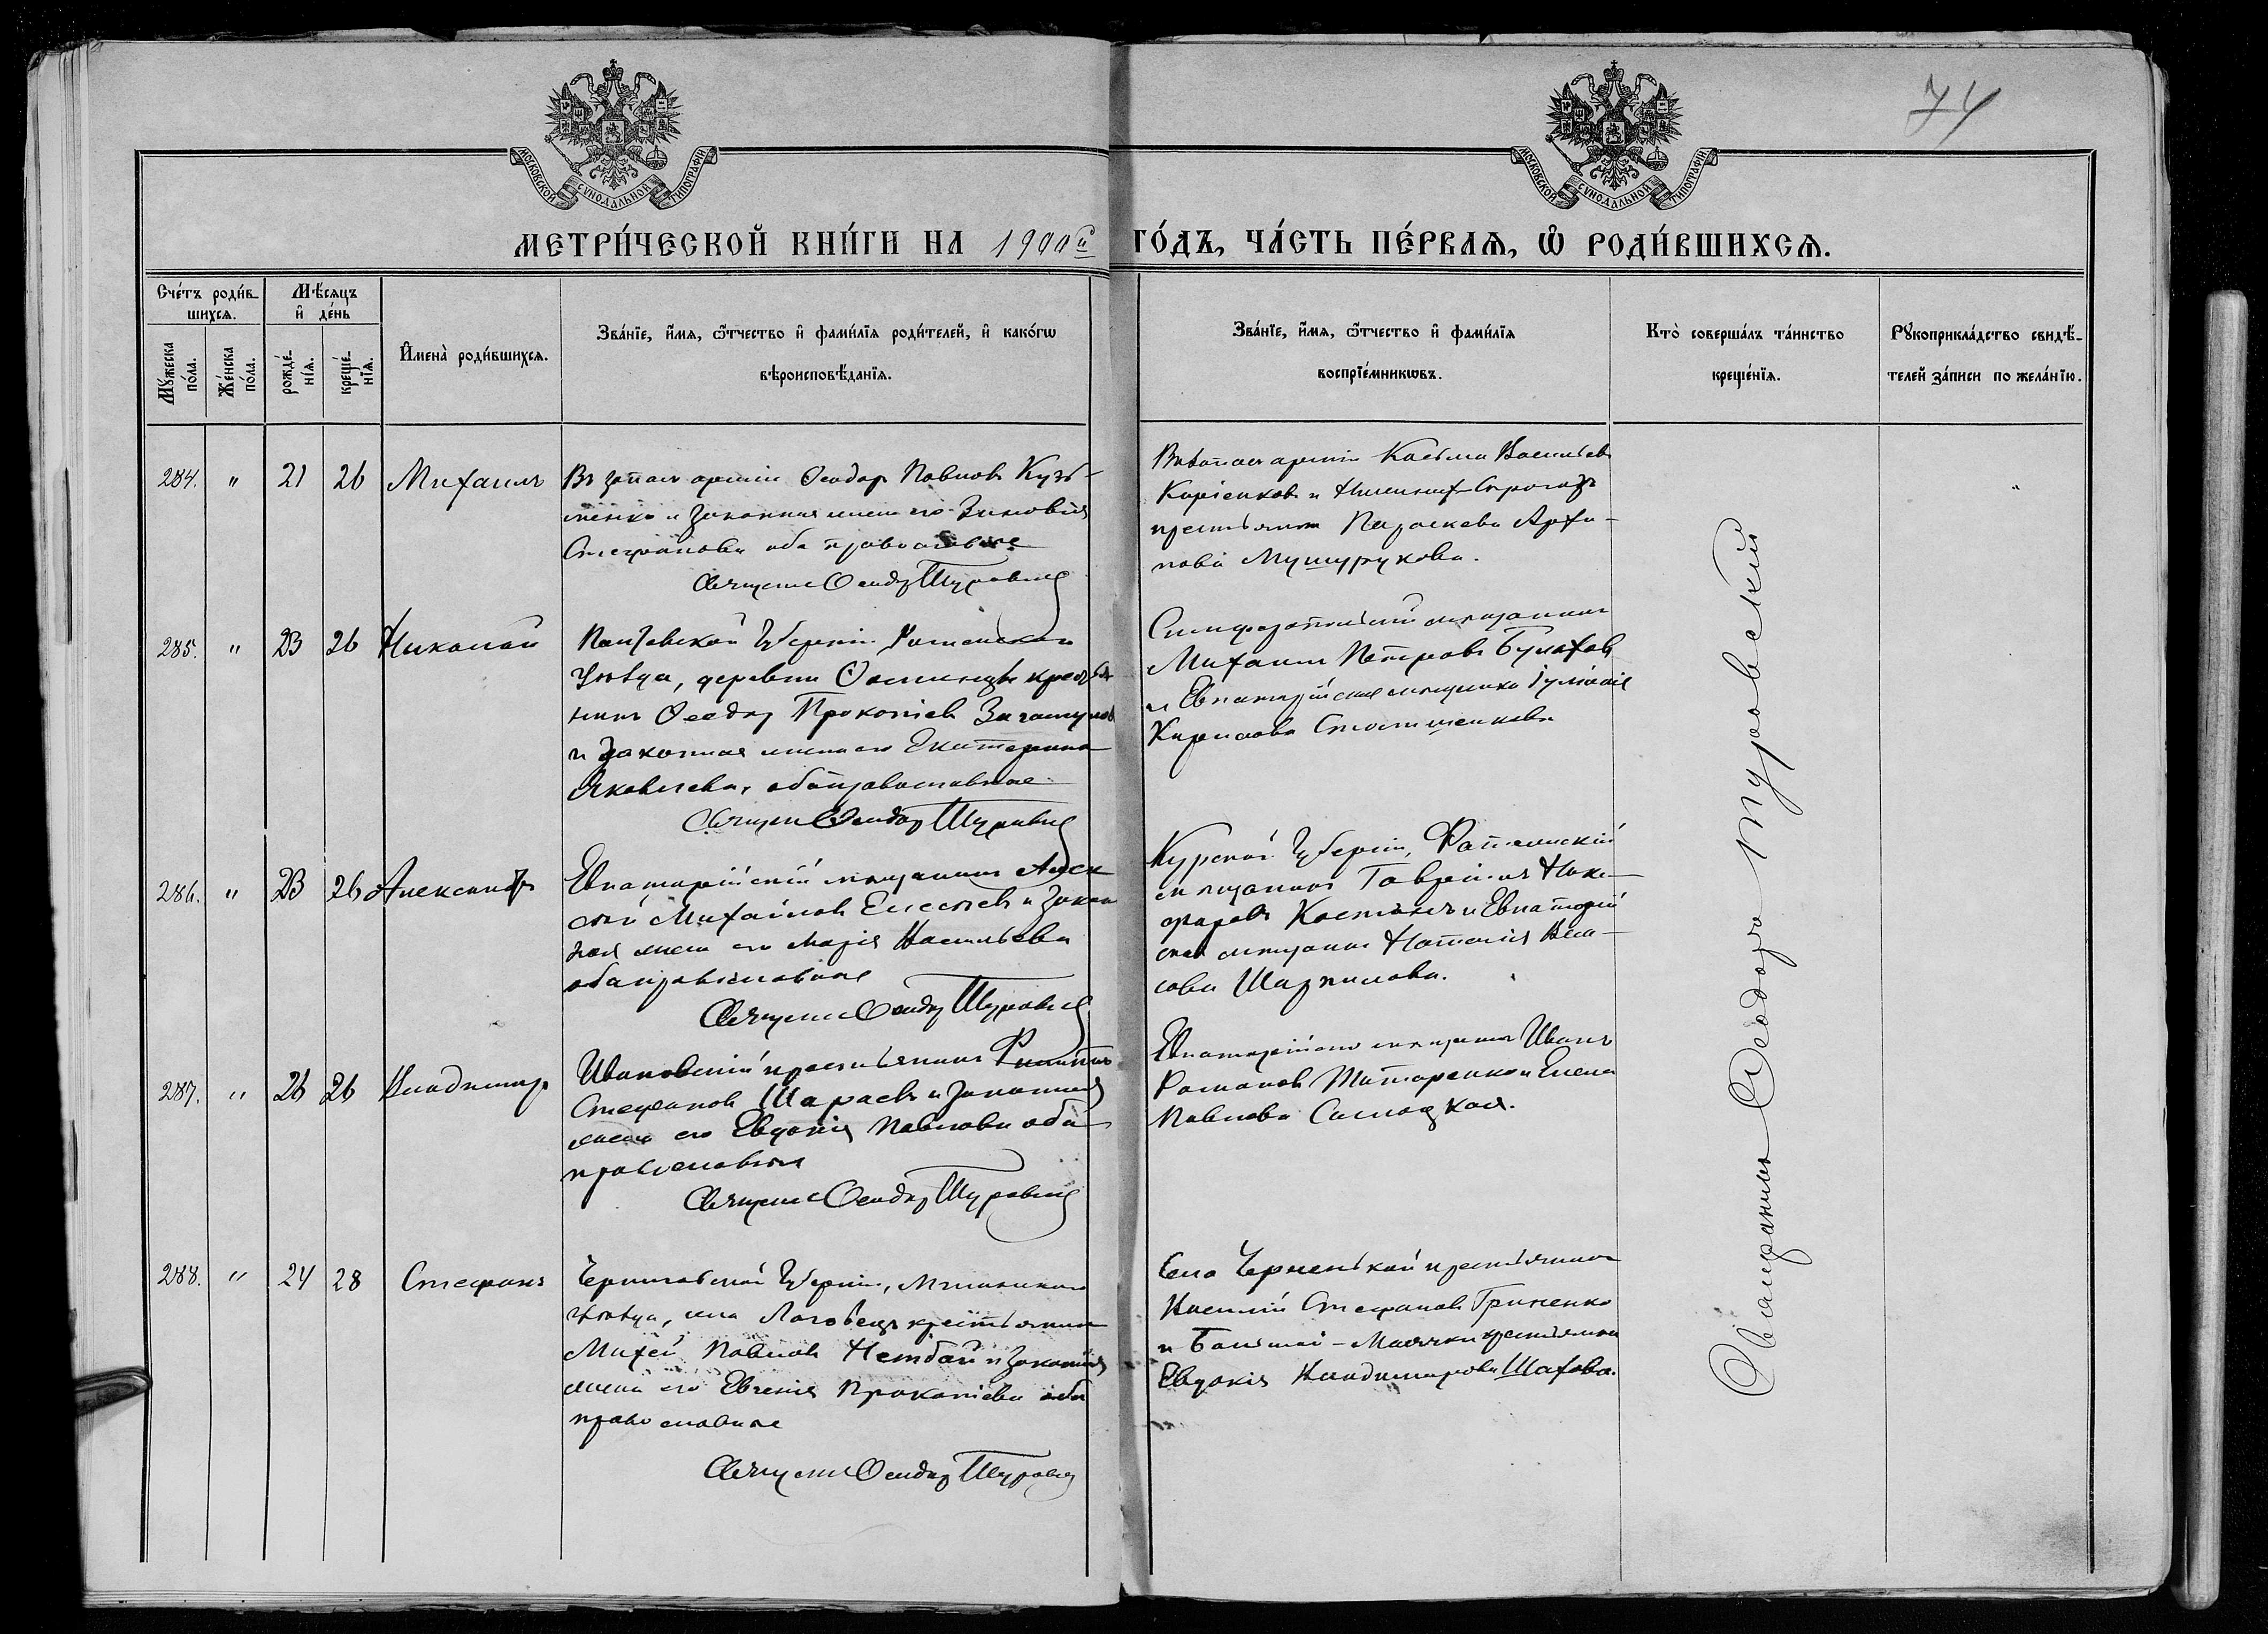 74
МОСКОВСКОЙ СѴНОДАЛЬНОЙ ТИПОГРАФІИ
МОСКОВСКОЙ СѴНОДАЛЬНОЙ ТИПОГРАФІИ
МЕТРИ́ЧЕСКОЙ КНИ́ГИ НА 1900й ГО́ДЪ, ЧА́СТЬ ПЕ́РВАѦ, Ѽ РОДИ́ВШИХСѦ.
Сче́тъ роди́в-
шихсѧ.
Мꙋ́жеска по́ла.
Же́нска по́ла.
Мѣ́сѧцъ
и҆ де́нь
рожде́-нїѧ.
креще́-нїѧ.
И҆мена̀ роди́вшихсѧ.
Зва́нїе, и҆́мѧ, ѻ҆́тчество и҆ фами́лїѧ роди́телей, и҆ како́гѡ
вѣроисповѣ́данїѧ.
Зва́нїе, и҆́мѧ, ѻ҆́тчество и҆ фами́лїѧ
воспрїе́мникѡвъ.
Кто̀ соверша́лъ та́инство
креще́нїѧ.
Рꙋкоприкла́дство свидѣ́-
телей за́писи по жела́нїю.
284. " 21 26 Михаилъ
Въ запасѣ арміи Ѳеодоръ Павловъ Кузь-
менко и законная жена его Зиновія
Стефанова оба православные
Священникъ Ѳеодоръ Туровскій
Въ запасѣ арміи Косьма Васильевъ
крестьянка Параскева Архи-
пова Мушурукова.
285. " 23 26 Николай
Полтавской Губерніи, Роменскаго
уѣзда, деревни крестья-
нинъ Ѳеодоръ Прокопіевъ
и законная жена его Екатерина
Яковлева, оба православные
Священникъ Ѳеодоръ Туровскій
Симферопольскій мѣщанинъ
Михаилъ Петровъ Булаховъ
и Евпаторійская мѣщанка Іуліанія
Кирилова
286. " 23 26 Александръ
Евпаторійскій мѣщанинъ Алек-
сѣй Михайловъ Елисѣевъ и закон-
ная жена его Марія Васильева
оба православные
Священникъ Ѳеодоръ Туровскій
Курской Губерніи,
мѣщанинъ Гавріилъ Ники-
форовъ и Евпаторій-
ская мѣщанка Наталія Вла-
сова Шарпилова.
287. " 26 26 Владимиръ
Ивановскій крестьянинъ Филиппъ
Стефановъ Шараевъ и законная
жена его Евдокія Павлова оба
православные
Священникъ Ѳеодоръ Туровскій
Евпаторійскій мѣщанинъ Иванъ
Романовъ Титаренко и Елена
Павлова
288. " 24 28 Стефанъ
Черниговской Губерніи, Мглинскаго
уѣзда, села крестьянинъ
Михей Павловъ и законная
жена его Евгенія Прокопіева оба
православные
Священникъ Ѳеодоръ Туровскій
Села крестьянинъ
Василій Стефановъ Гриненко
и Большой-Маячки крестьянка
Евдокія Владимирова Шахова.
Священникъ Ѳеодоръ Туровскій